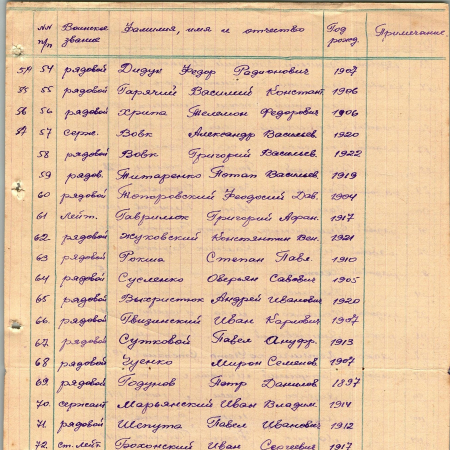 NN п/п Воинское звание Фамилия, имя и отчество Год рожд. Примечание
54 54 рядовой Дидук Федор Радионович 1907
55 55 рядовой Гарячий Василий Констант. 1906
56 56 рядовой Хрипа Филимон Федорович 1906
57 57 серж. Вовк Александр Васильев. 1920
58 рядовой Вовк Григорий Васильев. 1922
59 рядов. Титаренко Потап Васильев 1919
60 рядовой Топоровский Феодосий Дав. 1904
61 Лейт. Гаврилюк Григорий Афан. 1917
62 рядовой Жуховский Константин Вен. 1921
63 рядовой Рокша Степан Павл. 1910
64 рядовой Сусленко Оверьян Савович 1905
65 рядовой Выхристюк Андрей Иванович 1920
66. рядовой Пвизинский Иван Карпович 1907
67. рядовой Сутковой Павел Ануфр. 1913
68 рядовой Уценко Мирон Семенов. 1907
69. рядовой Годунов Петр Данилов 1897
70. сержант Марьянский Иван Владим. 1914
71. рядовой Шепута Павел Иванович 1912
72. ст. лейт. Бохонский Иван Сергеевич 1917